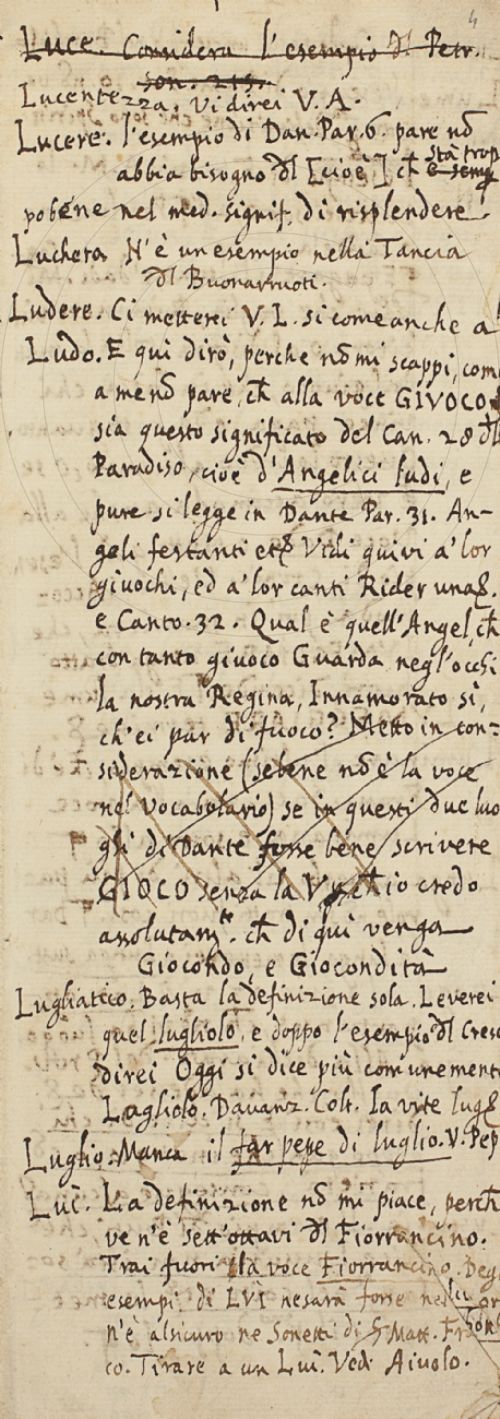 4
Luce. Considera l'esempio dl Petr.
son. 215.
Lucentezza. Vi direi V. A.
Lucere. l'esempio di Dan. Par. 6. pare nõ
abbia bisogno dl [cioè] ch̃ stà trop
pobene nel med. signif. di risplendere.
Luchera N'è un esempio nella Tancia
dl Buonarruoti.
Ludere. Ci metterei V. L. si come anche a
Ludo. E qui dirò, perche nõ mi scappi, com
a me nõ pare, ch̃ alla voce GIVOCO
sia questo significato del Can. 28 dl
Paradiso, cioè d'Angelici ludi, e
pure si legge in Dante Par. 31. An-
geli festanti etc. Vidi quivi a' lor
giuochi, ed a' lor canti Rider una
e Canto. 32. Qual è quell'Angel, ch̃
con tanto giuoco Guarda negl'occhi
la nostra Regina, Innamorato sì,
ch'ei par di fuoco? Metto in con-
siderazione (sebene nõ è la voce
nel Vocabolario) se in questi due luo
ghi di Dante fosse bene scrivere
GIOCO senza la V, ch̃ io credo
assolutam.te ch̃ di qui venga
Giocondo, e Giocondità
Lugliatico. Basta la definizione sola. Leverei
quel lugliolo, e doppo l'esempio dl Cresc
direi Oggi si dice più comunemente
Lugliolo. Davanz. Colt. la vite lug
Luglio. Manca il far pepe di luglio. V. Pep
Luì. La definizione nõ mi piace, perch̃
ve n'è sett'ottavi dl Fiorrancino.
Trai fuori la voce Fiorrancino. Deg
esempi di LVI ne sarà forse nel
n'è alsicuro ne Sonetti di Matt. Fr
co. Tirare a un Luì. Vedi Aivolo.